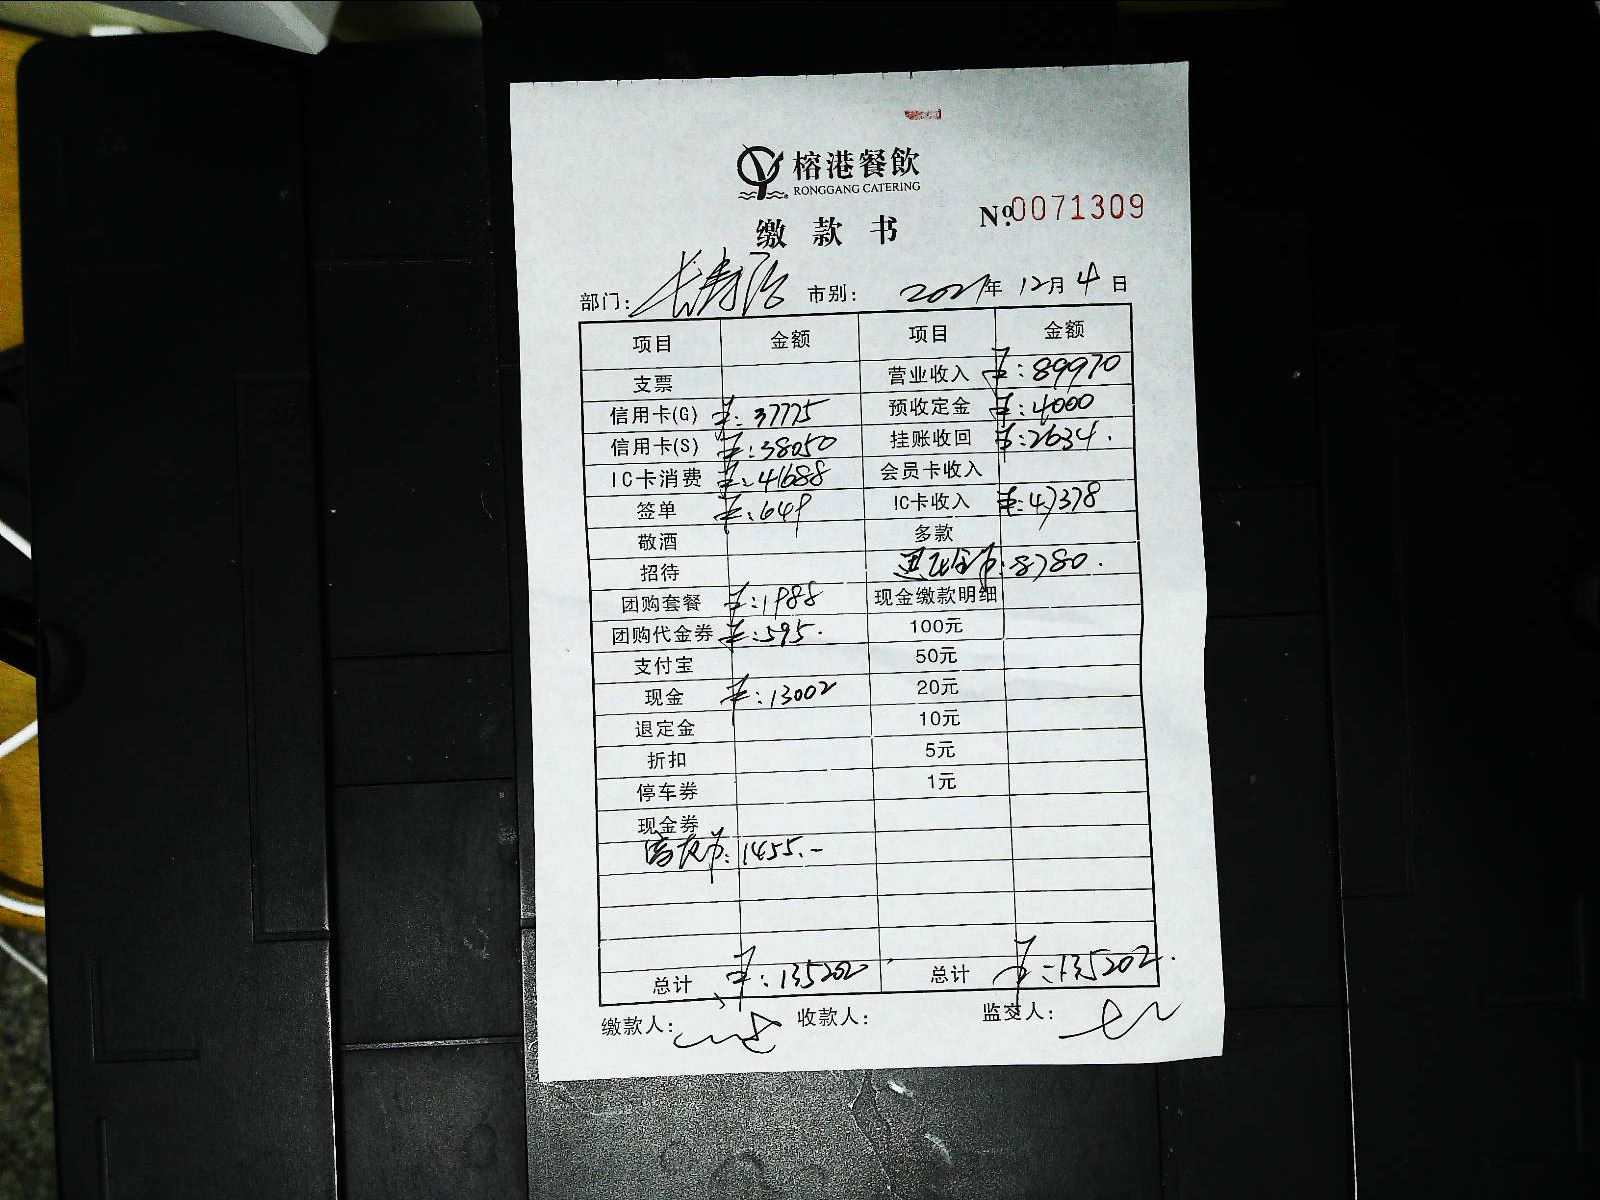 榕港餐飲
RONGGANG CATERING
缴款书
№0071309
部门: 长寿路 市别: 2021年 12月 4日
项目 金额 项目 金额
支票 营业收入 ¥:89970
信用卡(G) ¥:37775 预收定金 ¥:4000
信用卡(S) ¥:38050 挂账收回 ¥:2634.
IC卡消费 ¥:41688 会员卡收入
签单 ¥:649 IC卡收入 ¥:47378
敬酒 多款
招待 :8780.
团购套餐 ¥:1988 现金缴款明细
团购代金券 ¥:595. 100元
支付宝 50元
现金 ¥:13002 20元
退定金 10元
折扣 5元
停车券 1元
现金券
:1455.-
总计 ¥:135202 总计 ¥:135202.
缴款人: 收款人: 监交人: